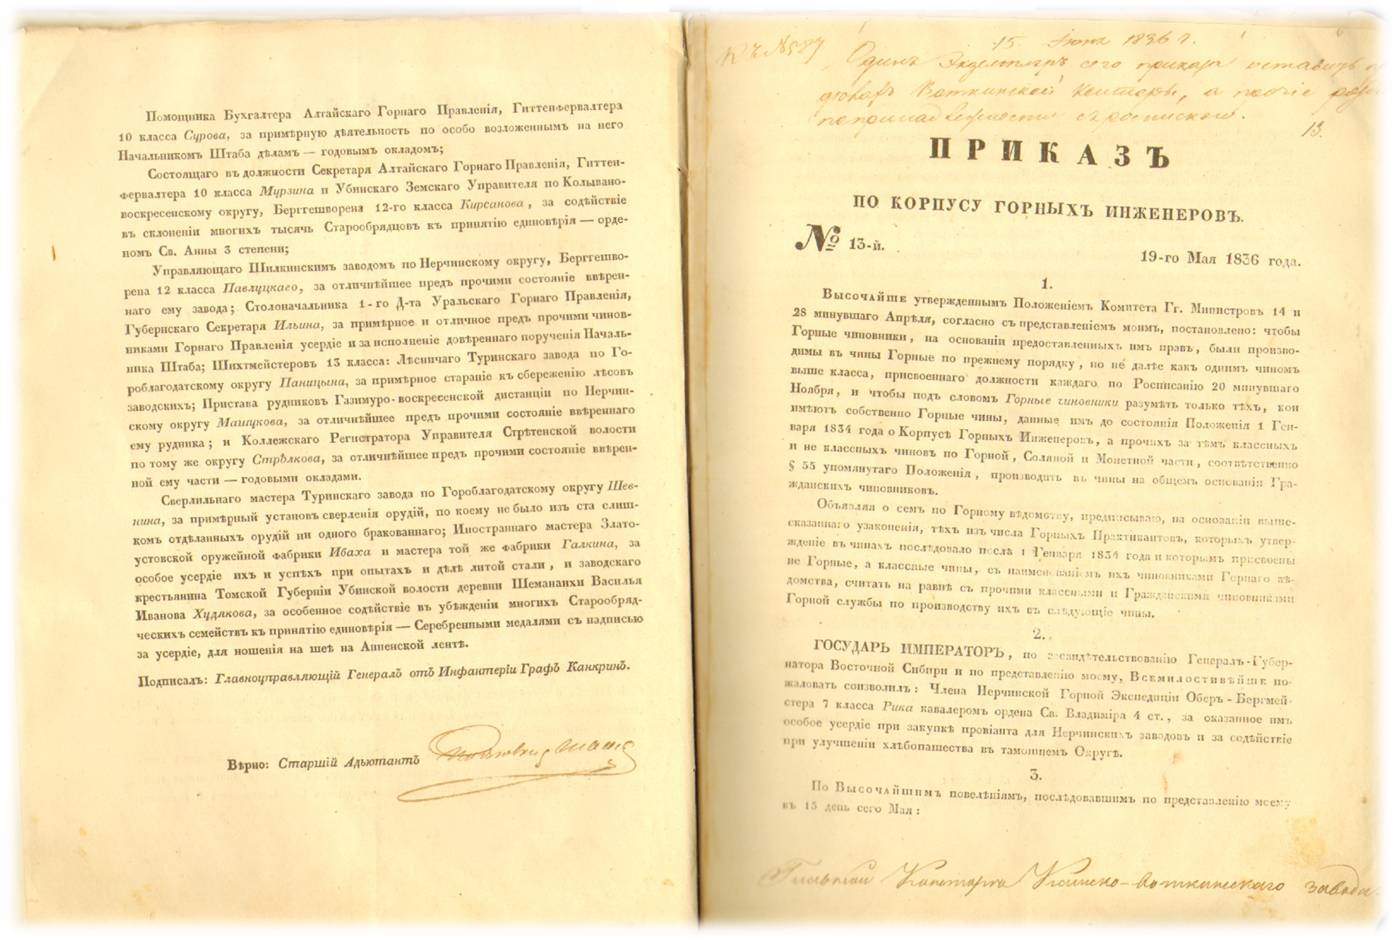 Помощника Бухгалтера Алтайскаго Горнаго Правленія, Гиттенфервалтера
10 класса Сурова, за примѣрную дѣятельность по особо возложеннымъ на него
Начальникомъ Штаба дѣламъ — годовымъ окладомъ;
Состоящаго въ должности Секретаря Алтайскаго Горнаго Правленія, Гиттен-
фервалтера 10 класса Мурзина и Убинскаго Земскаго Управителя по Колывано-
воскресенскому округу, Берггешворена 12-го класса Кирсанова, за содѣйствіе
въ склоненіи многихъ тысячь Старообрядцовъ къ принятію единовѣрія — орде-
номъ Св. Анны 3 степени;
Управляющаго Шилкинскимъ заводомъ по Нерчинскому округу, Берггешво-
рена 12 класса Павлуцкаго, за отличнѣйшее предъ прочими состояніе ввѣрен-
наго ему завода; Столоначальника 1-го Д-та Уральскаго Горнаго Правленія,
Губернскаго Секретаря Ильина, за примѣрное и отличное предъ прочими чинов-
никами Горнаго Правленія усердіе и за исполненіе довѣреннаго порученія Началь-
ника Штаба; Шихтмейстеровъ 13 класса: Лѣсничаго Туринскаго завода по Го-
роблагодатскому округу Паницына, за примѣрное стараніе къ сбереженію лѣсовъ
заводскихъ; Пристава рудниковъ Газимуро-воскресенской дистанціи по Нерчин-
скому округу Машукова, за отличнѣйшее предъ прочими состояніе ввѣреннаго
ему рудника; и Коллежскаго Регистратора Управителя Стрѣтенской волости
по тому же округу Стрѣлкова, за отличнѣйшее предъ прочими состояніе ввѣрен-
ной ему части — годовыми окладами.
Сверлильнаго мастера Туринскаго завода по Гороблагодатскому округу Шев-
нина, за примѣрный установъ сверленія орудій, по коему не было изъ ста слиш-
комъ отдѣланныхъ орудій ни одного бракованнаго; Иностраннаго мастера Злато-
устовской оружейной фабрики Ибаха и мастера той же фабрики Галкина, за
особое усердіе ихъ и успѣхъ при опытахъ и дѣлѣ литой стали, и заводскаго
крестьянина Томской Губерніи Убинской волости деревни Шеманаихи Василья
Иванова Худякова, за особенное содѣйствіе въ убѣжденіи многихъ Старообряд-
ческихъ семействъ къ принятію единовѣрія — Серебренными медалями съ надписью
за усердіе, для ношенія на шеѣ на Анненской лентѣ.
Подписалъ: Главноуправляющій Генералъ отъ Инфантеріи Графъ Канкринъ.
Вѣрно: Старшій Адъютантъ
15 Іюня 1836 г.
Одинъ Экземпляръ сего приказа оставить
Воткинской Конторы, а прочіе
по принадлежности съ роспискою.
13.
ПРИКАЗЪ
ПО КОРПУСУ ГОРНЫХЪ ИНЖЕНЕРОВЪ.
№ 13-й.
19-го Мая 1836 года.
1.
Высочайше утвержденнымъ Положеніемъ Комитета Гг. Министровъ 14 и
28 минувшаго Апрѣля, согласно съ представленіемъ моимъ, постановлено: чтобы
Горные чиновники, на основаніи предоставленныхъ имъ правъ, были произво-
димы въ чины Горные по прежнему порядку, но не далѣе какъ однимъ чиномъ
выше класса, присвоеннаго должности каждаго по Росписанію 20 минувшаго
Ноября, и чтобы подъ словомъ Горные чиновники разумѣть только тѣхъ, кои
имѣютъ собственно Горные чины, данные имъ до состоянія Положенія 1 Ген-
варя 1834 года о Корпусѣ Горныхъ Инженеровъ, а прочихъ за тѣмъ классныхъ
и не классныхъ чиновъ по Горной, Соляной и Монетной части, соотвѣтственно
§ 55 упомянутаго Положенія, производить въ чины на общемъ основаніи Гра-
жданскихъ чиновниковъ.
Объявляя о семъ по Горному вѣдомству, предписываю, на основаніи выше-
сказаннаго узаконенія, тѣхъ изъ числа Горныхъ Практикантовъ, которыхъ утвер-
жденіе въ чинахъ послѣдовало послѣ 1 Генваря 1834 года и которымъ присвоены
не Горные, а классные чины, съ наименованіемъ ихъ чиновниками Горнаго вѣ-
домства, считать на равнѣ съ прочими классными и Гражданскими чиновниками
Горной службы по производству ихъ въ слѣдующіе чины.
2.
ГОСУДАРЬ ИМПЕРАТОРЪ, по засвидѣтельствованію Генералъ-Губер-
натора Восточной Сибири и по представленію моему, Всемилостивѣйше по-
жаловать соизволилъ: Члена Нерчинской Горной Экспедиціи Оберъ-Бергмей-
стера 7 класса Рика кавалеромъ ордена Св. Владиміра 4 ст., за оказанное имъ
особое усердіе при закупкѣ провіанта для Нерчинскихъ заводовъ и за содѣйствіе
при улучшеніи хлѣбопашества въ тамошнемъ Округѣ.
3.
По Высочайшимъ повелѣніямъ, послѣдовавшимъ по представленію моему
въ 15 день сего Мая:
Конторѣ Камско-Воткинскаго завода